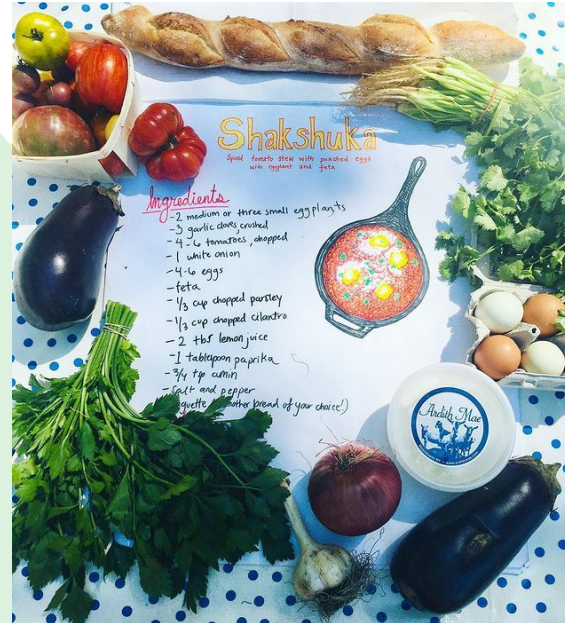 Shakshuka
Spiced tomato stew with poached eggs
with eggplant and feta
Ingredients
-2 medium or three small eggplants
-3 garlic cloves, crushed
-4-6 tomatoes, chopped
-1 white onion
-4-6 eggs
-feta
-1/3 cup chopped parsley
-1/3 cup chopped cilantro
-2 tbs lemon juice
-1 tablespoon paprika
-3/4 tsp cumin
-Salt and pepper
another bread of your choice!)
Ardith Mae